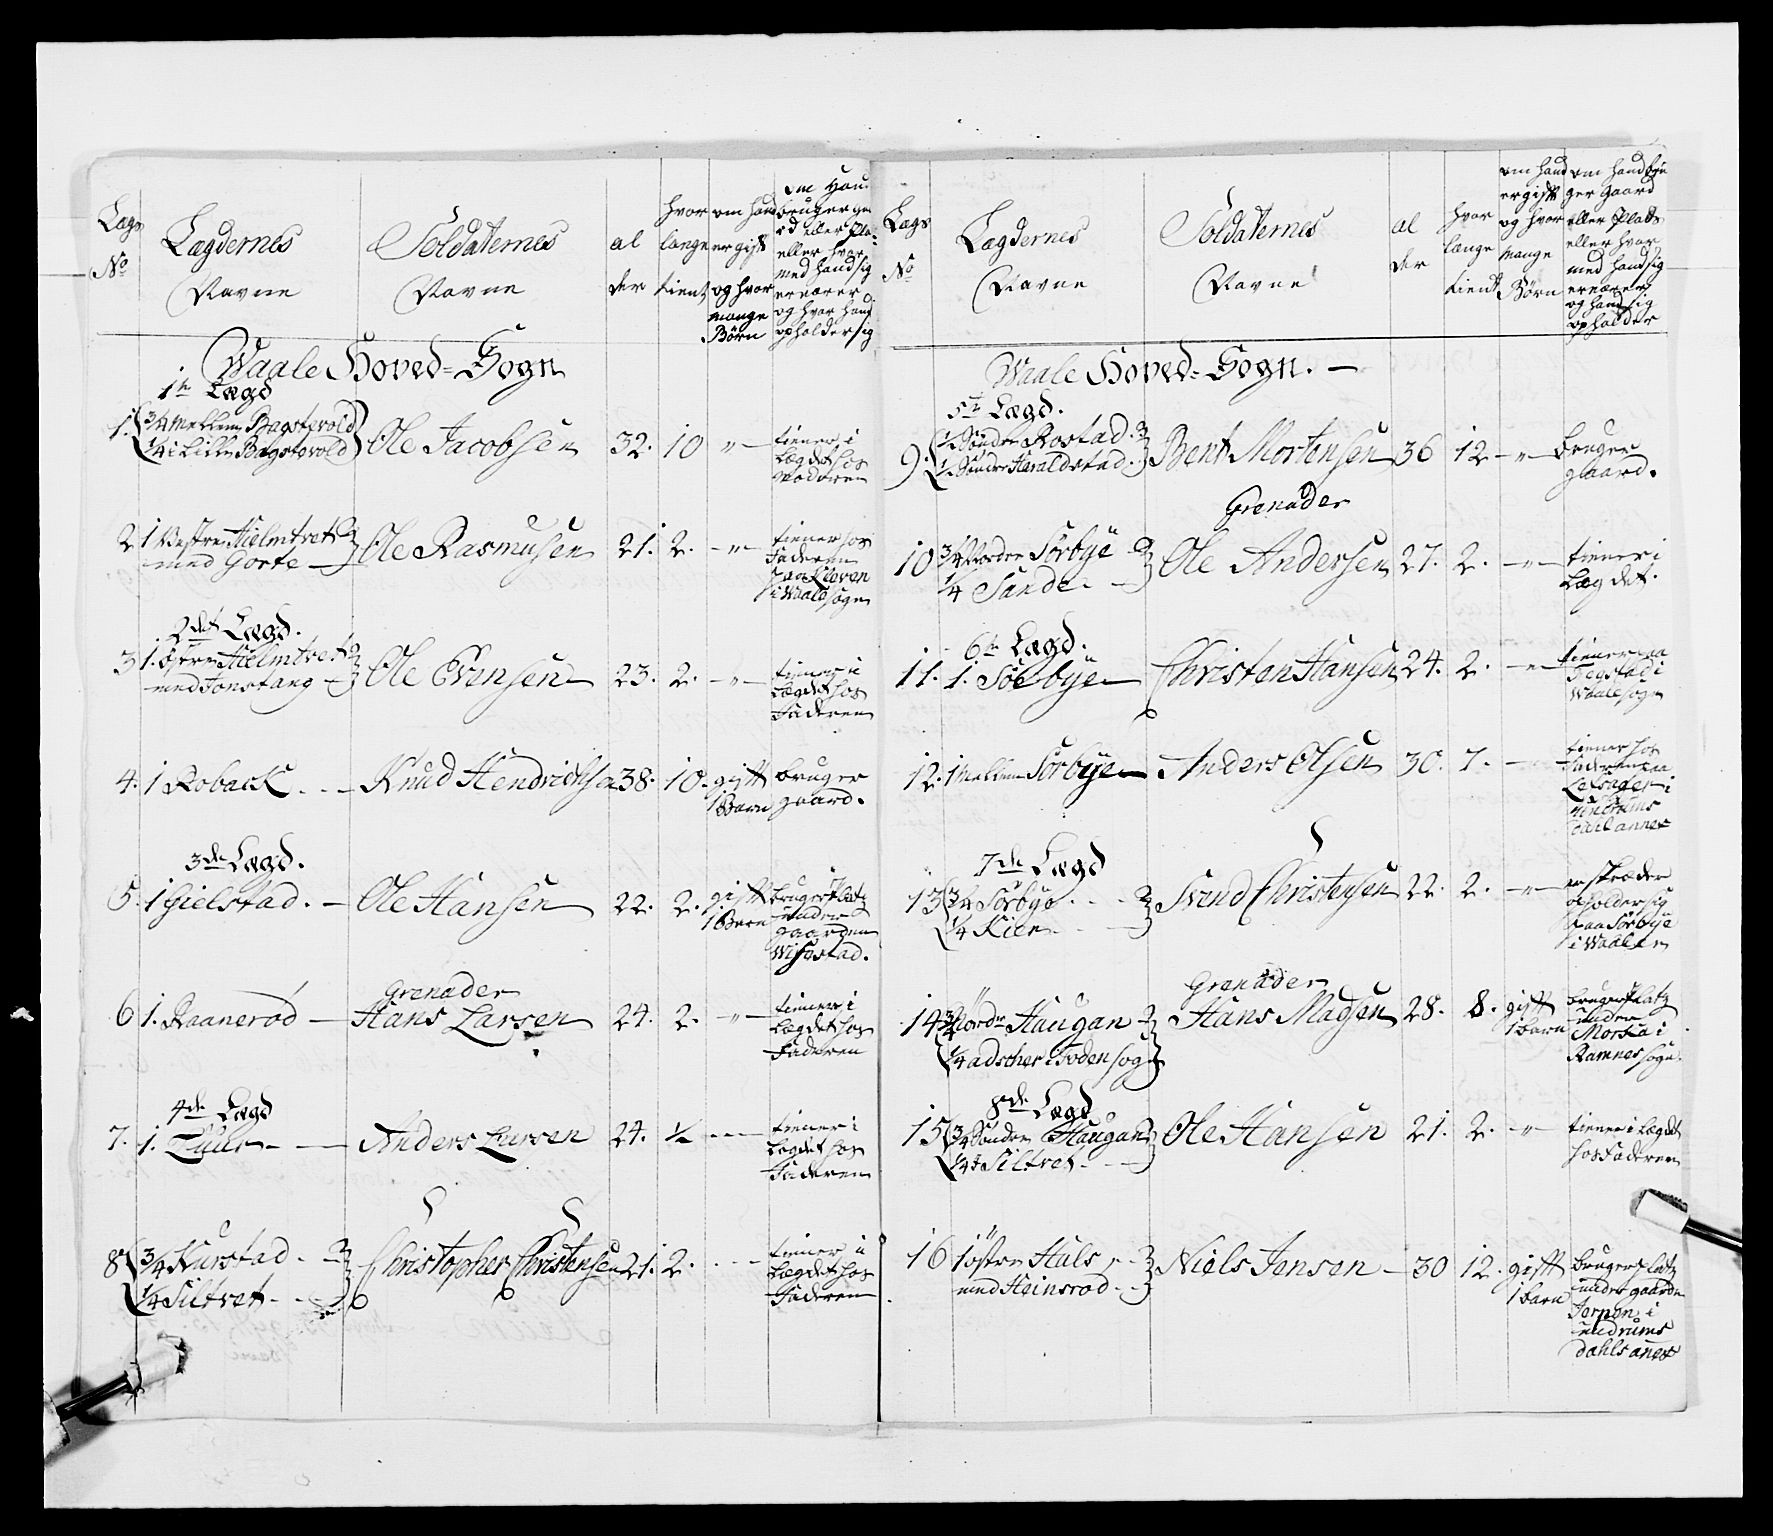 Lægs
No
Lægdernes
Navne
Soldaternes
Navne
al
der
hvor
længe
tient
om hand
er gift
og hvor
mange
Børn
om Hand
bruger ga
rd eller Pla-
eller hvor
med hand sig
ernærer
og hvor hand
opholder sig
Waale Hoved-Sogn
1te Lægd
1. 3/4 Mellem Bagstevold Ole Jacobsen 32. 10 -"- tiener i
1/4 i Lille Bagstevold Lægdet hos
Moderen
2 1 Vestre Hielmtvet Ole Rasmusen 21. 2. -"- tiener hos
med Gorte Faderen
paa Kleven
i Waale sogn
2det Lægd.
3 1. østre Hielmtvet Ole Evensen 23. 2. -"- tiener i
med Jonstang Lægdet hos
Faderen
4. 1 Roback Knud Hendrichsen 38. 10. gift bruger
1 Barn gaard.
3de Lægd.
5. 1 Gielstad. Ole Hansen 22. 2. gift bruger Platz
1 Barn under
gaarden
Wisestad.
Grenader
6 1. Raanerød Hans Larsen 24. 2. -"- tiener i
Lægdet hos
Faderen
4de Lægd
7. 1. Anders Larsen 24. 1/2 tiener i
Lægdet hos
Faderen
8 3/4 Kurstad Christopher Christensen 21. 2. tiener i
1/4 Siltvet Lægdet hos
Faderen
Lægs
No
Lægdernes
Navne
Soldaternes
Navne
al
der
hvor
længe
tient
om hand
er gift
og hvor
mange
Børn
om hand bru
ger gaard
eller Plads
eller hvor
med hand sig
ernærer
og hand sig
opholder
Waale Hoved-Sogn.
5te Lægd.
9. 1/2 Søndre Rostad. Bent Mortensen 36 12 -"- bruger
1/2 Søndre Haraldstad. gaard.
Grenader
10 3/4 Nordre Sørbye Ole Andersen 27. 2. -"- tiener i
1/4 Sande Lægdet.
6te Lægd.
11. 1. Sørbye Christen Hansen 24. 2. -"- tiener paa
i
Waale sogn
12. 1 Mellem Sørbye Anders Olsen 30. 7. tiener hos
Faderen paa
i
undrums
dahl annex
7de Lægd
13 3/4 Sørbye Svend Christensen 22. 2. -"- er skræder
1/4 Kier opholder sig
paa Sørbye
i Waale
Grenader
14 3/4 Nordre Haugan Hans Madsen 28. 8. gift bruger Platz
1/4 adscher i Foden sogn 1 barn under
i
Ramnes sogn.
8de Lægd
15 3/4 Søndre Haugan Ole Hansen 21. 2. -"- tiener i Lægdet
1/4 i Siltvet hos Faderen
16 1 østre Hals Niels Jensen 30 12. gift bruger Platz
med Heinsrød 1 barn under gaarden
i
undrums
dahls anex